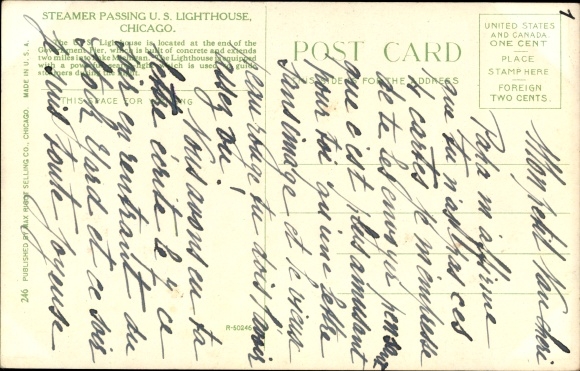 STEAMER PASSING U. S. LIGHTHOUSE,
CHICAGO.
The U. S. Lighthouse is located at the end of the
Government Pier, which is built of concrete and extends
two miles into Lake Michigan. The Lighthouse is equipped
with a powerful light which is used to guide
steamers during the night.
THIS SPACE FOR WRITING
POST CARD
THIS SIDE IS FOR THE ADDRESS
UNITED STATES
AND CANADA
ONE CENT
PLACE
STAMP HERE
FOREIGN
TWO CENTS.
246 PUBLISHED BY MAX RIGOT SELLING CO., CHICAGO. MADE IN U. S. A.
R-50246
Mon petit
Papa m'affirme
que tu n'as pas ces
cartes je m'empresse
de te les envoyer pensant
que c'est plus amusant
pour toi qu'une lettre
sans image et vieux
courage tu dois l'avoir
assez ou!
Nous avons eu ta
lettre écrite le 9 ce
soir en rentrant du
et ce soir
je suis toute joyeuse